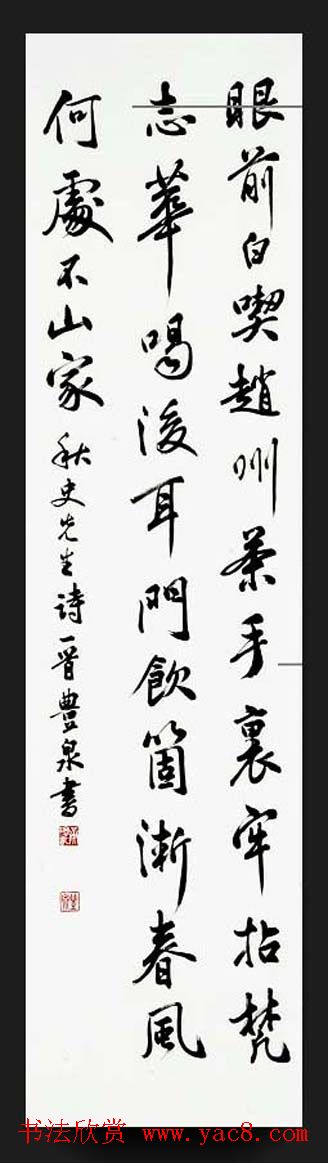 眼前白喫趙州茶手裏牢拈梵
志華喝後耳門飲箇漸春風
何處不山家 秋史先生詩 豊泉書
书法欣赏 www.yac8.com